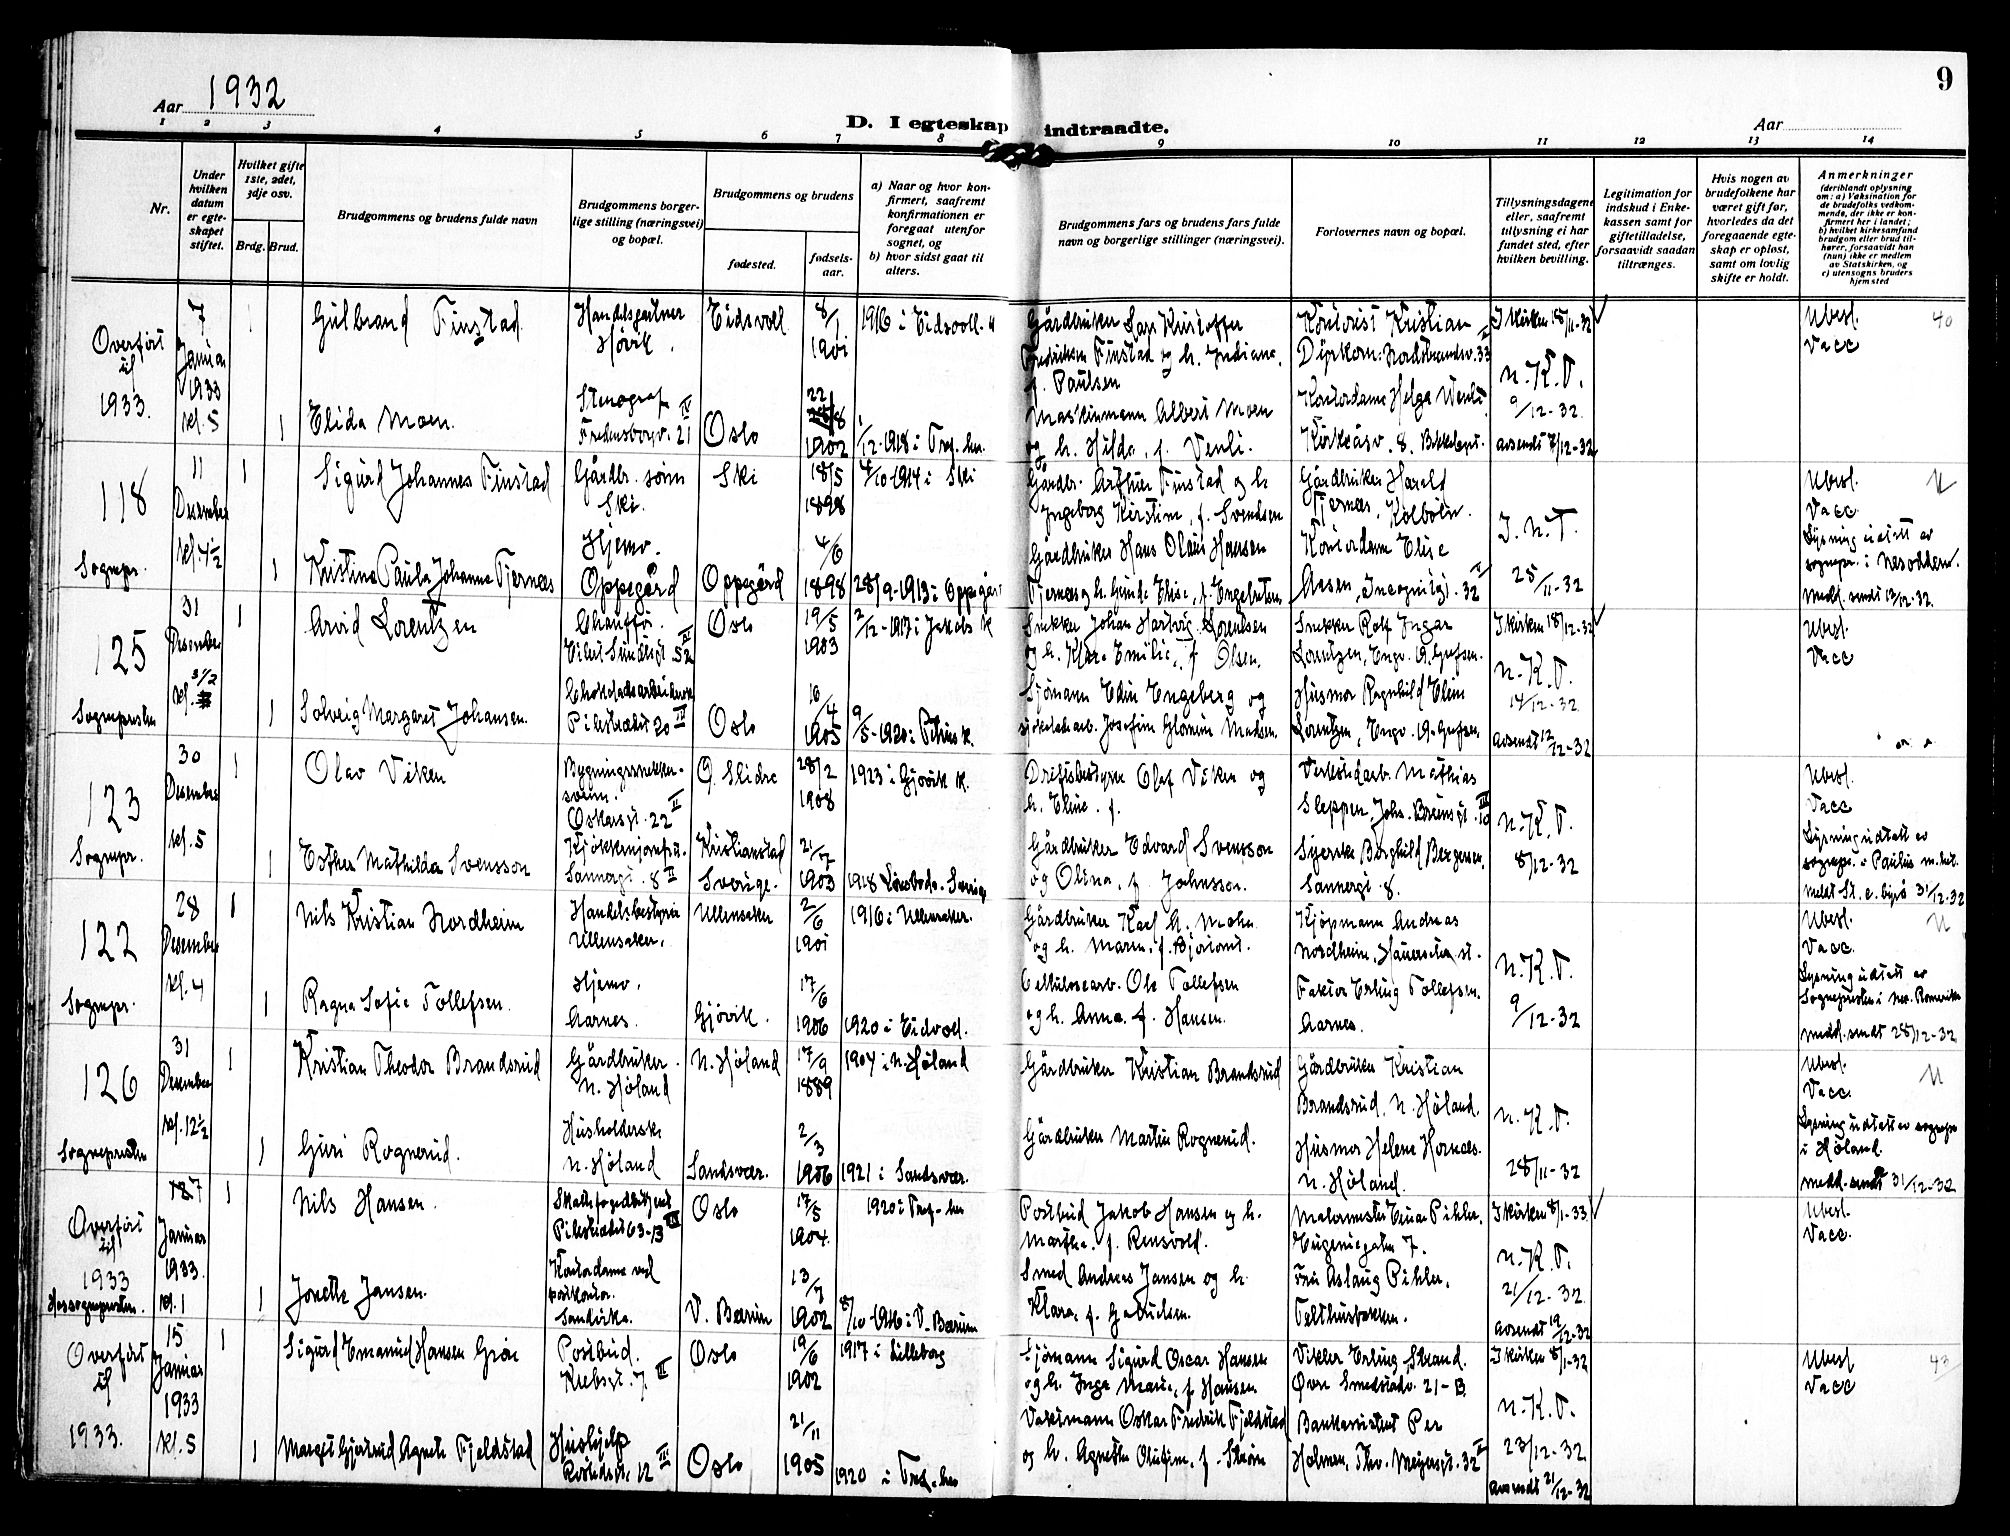 9
Aar 1932
D. I egteskap indtraadte.
Aar
1 2 3 4 5 6 7 8 9 10 11 12 13 14
Nr.
Under hvilken datum er egte-skapet stiftet.
Hvilket gifte 1ste, 2det, 3dje osv.
Brdg. Brud.
Brudgommens og brudens fulde navn
Brudgommens borger-lige stilling (næringsvei) og bopæl.
Brudgommens og brudens
fødested.
fødsels-aar.
a) Naar og hvor kon-firmert, saafremt konfirmationen er foregaat utenfor sognet, og
b) hvor sidst gaat til alters.
Brudgommens fars og brudens fars fulde navn og borgerlige stillinger (næringsvei).
Forlovernes navn og bopæl.
Tillysningsdagene eller, saafremt tillysning ei har fundet sted, efter hvilken bevilling.
Legitimation for indskud i Enke-kassen samt for giftetilladelse, forsaavidt saadan tiltrænges.
Hvis nogen av brudefolkene har været gift før, hvorledes da det foregaaende egte-skap er opløst, samt om lovlig skifte er holdt.
Anmerkninger
(deriblandt oplysning om: a) Vaksination for de brudefolks vedkom-mende, der ikke er kon-firmert her i landet; b) hvilket kirkesamfund brudgom eller brud til-hører, forsaavidt han (hun) ikke er medlem av Statskirken, og c) utensogns bruders hjemsted
Overført til 1933.
7 Januar 1933 kl. 5
1
Gulbrand Finstad
Handelsgartner
Høvik.
Eidsvoll
8/1 1901
1916 i Eidsvoll.
Gårdbruker Lars Kristoffer
Fredriksen Finstad og h. Indiana,
f. Paulsen
Kontorist Kristian
I kirken 18/11-32
Ubesl.
Vacc
40
1
Elida Moen.
Stenograf
Fredensborgv. 21 IV
Oslo
22/8 1902
1/12-1918 i Tref. kn.
Maskinmann Albert Moen
og h. Hilda, f. Venli.
Kontordame Helga Wenli
Kirkeåsv. 8.
N.K.T.
9/12-32.
avsendt 7/12-32
118
Sognepr.
11 Desember kl. 4½
1
Sigurd Johannes Finstad
Gårdbr. sønn
Ski.
Ski
18/5 1898
4/10-1914 i Ski
Gårdbr. Arthur Finstad og h
Ingeborg Kirstine, f. Svendsen
Gårdbruker Harald
Tjernæs. Kolbotn.
I.N.T.
Ubesl.
Vacc
Lysning utstett av
sognepr. i Nesodden.
medd. sendt 12/12-32.
1
Kristine Paula Johanne Tjernæs
Hjemv.
Oppegård
Oppegård
4/6 1898
28/9-1913 i Oppegård
Gårdbruker Hans Olaus Hansen
Kontordame Elise
Aasen, Incognitogt. 32
25/11-32
125
Sognepresten
31 Desember kl. 3½
1
Arvid Lorentzen
Chauffør.
Eilert Sundtsgt 52
Oslo
19/5 1903
2/12-1917 i Jakobs K
Snekker Johan Hartvig Lorentsen
og h. Emilie, f. Olsen.
Snekker Rolf Ingar
I kirken 18/12-32
Ubesl.
Vacc
1
Solveig Margaret Johansen.
Pilestrædet 20 IV
Oslo
16/4 1905
9/5-1920 i Petrus K.
Sjømann Edin Engeberg og
Husmor Ragnhild Elise
N.K.T.
14/12-32
avsendt 12/12-32
123
Sognepr.
30 Desember kl. 5
1
Olav Viken
Bygningssnekker-
svenn.
Oscarsgt. 22 II
Ø. Slidre
28/2 1908
1923 i Gjøvik K.
Driftsbestyrer Olaf Viken og
h. Eline. f.
Verkstedarb. Mathias
Sleppen, Johs. Brunsgt. 10
Ubesl.
Vacc
1
Esther Mathilda Svensson
Sannergt. 8 II
Kristianstad
Sverige.
21/7 1903
Gårdbruker Edvard Svensson
og Olina, f. Johnsson.
Syerske Borghild Bergersen,
Sannergt 8.
N.K.T.
8/12-32
Lysning utstett av
sognepr. i Paulus m.h.t.
122
Sognepr.
28 Desember kl. 4
1
Nils Kristian Nordheim
Handelsbestyrer
Ullensaker.
Ullensaker
2/6 1901
1916 i Ullensaker.
Gårdbruker Karl H. Mohn
og h. Maren, f.
Kjøpmann Andreas
Ubesl.
Vacc.
1
Ragna Sofie Tollefsen.
Hjemv.
Aarnes.
Gjøvik.
17/6 1906
1920 i Eidsvoll.
Cellulosearb. Ole Tollefsen
og h. Anna. f. Hansen.
Faktor Erling Tollefsen.
Aarnes.
N.K.T.
9/12-32
Lysning utstett av
Sognepresten i Nes. Romerike
medd. sendt 28/12-32
126
Sognepresten
31 Desember kl. 12½
1
Kristian Theodor Brandsrud
Gårdbruker
N. Høland
N. Høland
17/9 1889
1904 i N. Høland
Gårdbruker Kristian Brandsrud
Gårdbruker Kristian
Brandsrud, N. Høland.
Ubesl.
Vacc.
1
Guri Rognerud.
Husholderske
N. Høland
Sandsvær.
2/3 1906
1921 i Sandsvær.
Gårdbruker Martin Rognerud.
Husmor Helene Hornæs.
N. Høland.
N.K.T.
28/11-32
Lysning utstett av sognepr
i Høland.
medd. sendt 31/12-32
Overført til 1933
Hossognepresten.
7 Januar 1933. kl. 1
1
Nils Hansen.
Pilestrædet 63-13
Oslo
17/5 1904.
1920 i Tref. kn
Postbud Jakob Hansen og h.
Martha. f. Rensvold.
Malermester Einar Pihler,
Eugeniegaten 7.
I kirken 8/1-33
Ubesl.
Vacc.
1
Jonette Jansen.
Kontordame ved
postkontor.
Sandvika.
V. Bærum
13/7 1902
8/10-1916 i V. Bærum
Smed Andreas Jansen og h.
Klara, f. Gabrielsen.
Fru Aslaug Pihler,
Telthusbakken.
N.K.T.
21/12-32.
avsendt 19/12-32
Overført til 1933.
15 Januar 1933 kl. 5
1
Sigurd Emanuel Hansen Grøn
Postbud.
Krebsgt. 7. III
Oslo
19/6 1902
1917 i Lilleborg
Sjømann Sigurd Oscar Hansen
og h. Inga Marie, f. Hansen
Vikler Erling Strand.
Øvre Smedstadv. 21-B
I kirken 8/1-32
Ubesl
Vacc
43
1
Margit Gjertrud Agnete Fjeldstad
Hushjelp
Oslo
21/11 1905
1920 i Tref. kn
Vaktmann Oskar Fredrik Fjeldstad
og h. Agnethe Olufine, f. Strøm
Bankassistent Per
Holmen, Thv. Meyersgt. 32 II
N.K.T.
23/12-32
avsendt 21/12-32